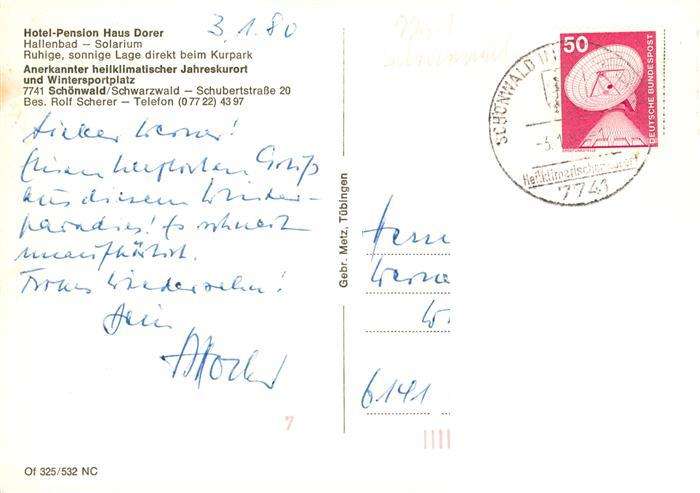 3.1.80
Hotel-Pension Haus Dorer
Hallenbad – Solarium
Ruhige, sonnige Lage direkt beim Kurpark
Anerkannter heilklimatischer Jahreskurort
und Wintersportplatz
7741 Schönwald/Schwarzwald – Schubertstraße 20
Bes. Rolf Scherer – Telefon (0 77 22) 43 97
Lieber Werner!
Einen herzlichen Gruß
aus diesem Winter-
paradies! Es schneit
unaufhörlich.
Frohes Wiedersehn!
Dein
7
Of 325/532 NC
Gebr. Metz, Tübingen
50
DEUTSCHE BUNDESPOST
SCHÖNWALD
-3.1
Heilklimatischer
7741
Herrn
Werne
6141